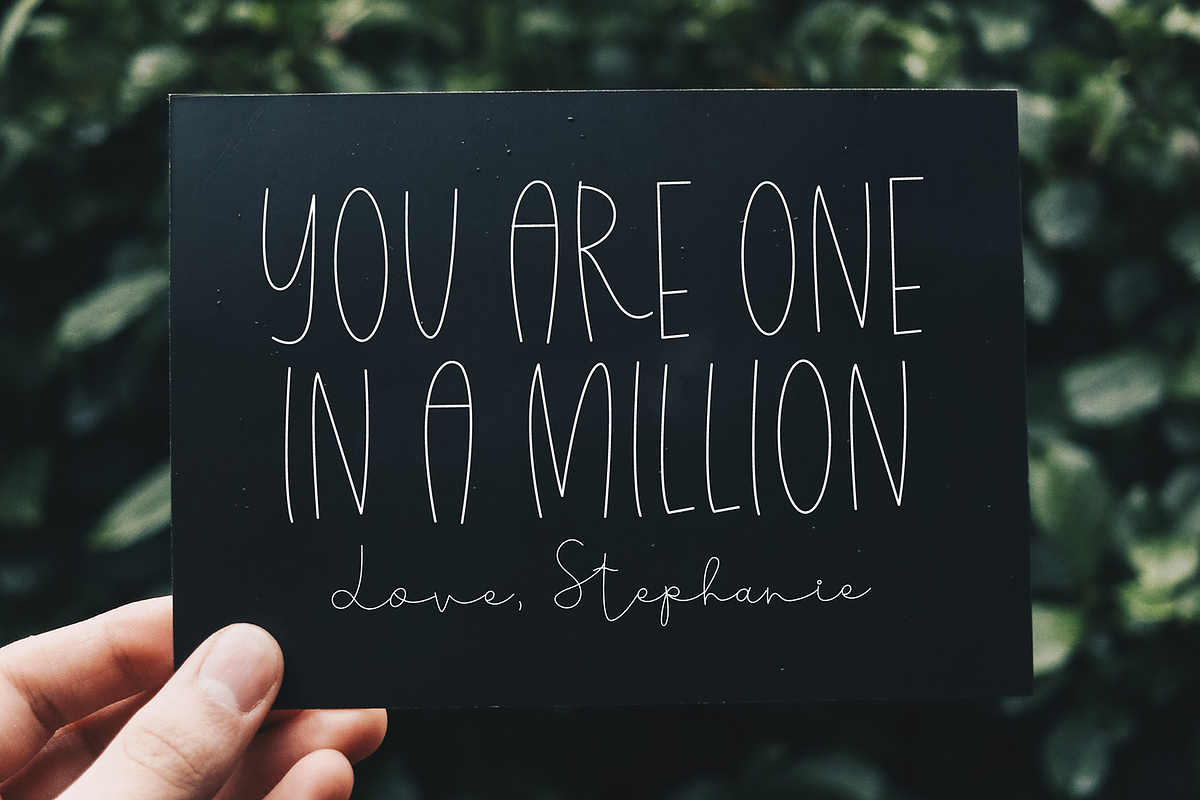 YOU ARE ONE
IN A MILLION
Love, Stephanie